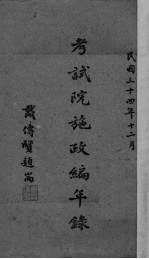 民國三十四年十二月
考試院施政編年錄
戴傳賢題耑